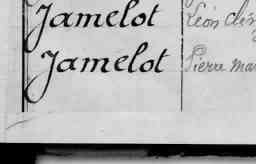 Jamelot Léon
Jamelot Pierre